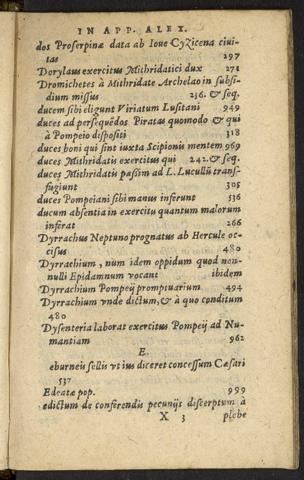 IN APP. ALEX.
dos Proserpinæ data ab Ioue Cyzicena ciui-
tas 197
Dorylaus exercitus Mithridatici dux 271
Dromichetes à Mithridate Archelao in subsi-
dium missus 236. & seq.
ducem sibi eligunt Viriatum Lusitani 949
duces ad persequẽdos Piratas quomodo & qui
à Pompeio dispositi 318
duces boni qui sint iuxta Scipionis mentem 969
duces Mithridatis exercitus qui 242. & seq.
duces Mithridatis passim ad L. Lucullũ transf-
fugiunt 305
duces Pompeiani sibi manus inferunt 536
ducum absentia in exercitu quantum malorum
inferat 266
Dyrrachus Neptuno prognatus ab Hercule oc-
cisus 480
Dyrrachium, num idem oppidum quod non-
nulli Epidamnum vocant ibidem
Dyrrachium Pompeij promptuarium 494
Dyrrachium vnde dictum, & à quo conditum
480
Dysenteria laborat exercitus Pompeij ad Nu-
mantiam 962
E.
eburneis sellis vt ius diceret concessum Cæsari
537
Edeatæ pop. 999
edictum de conferendis pecunijs discerptum à
X 3 plebe